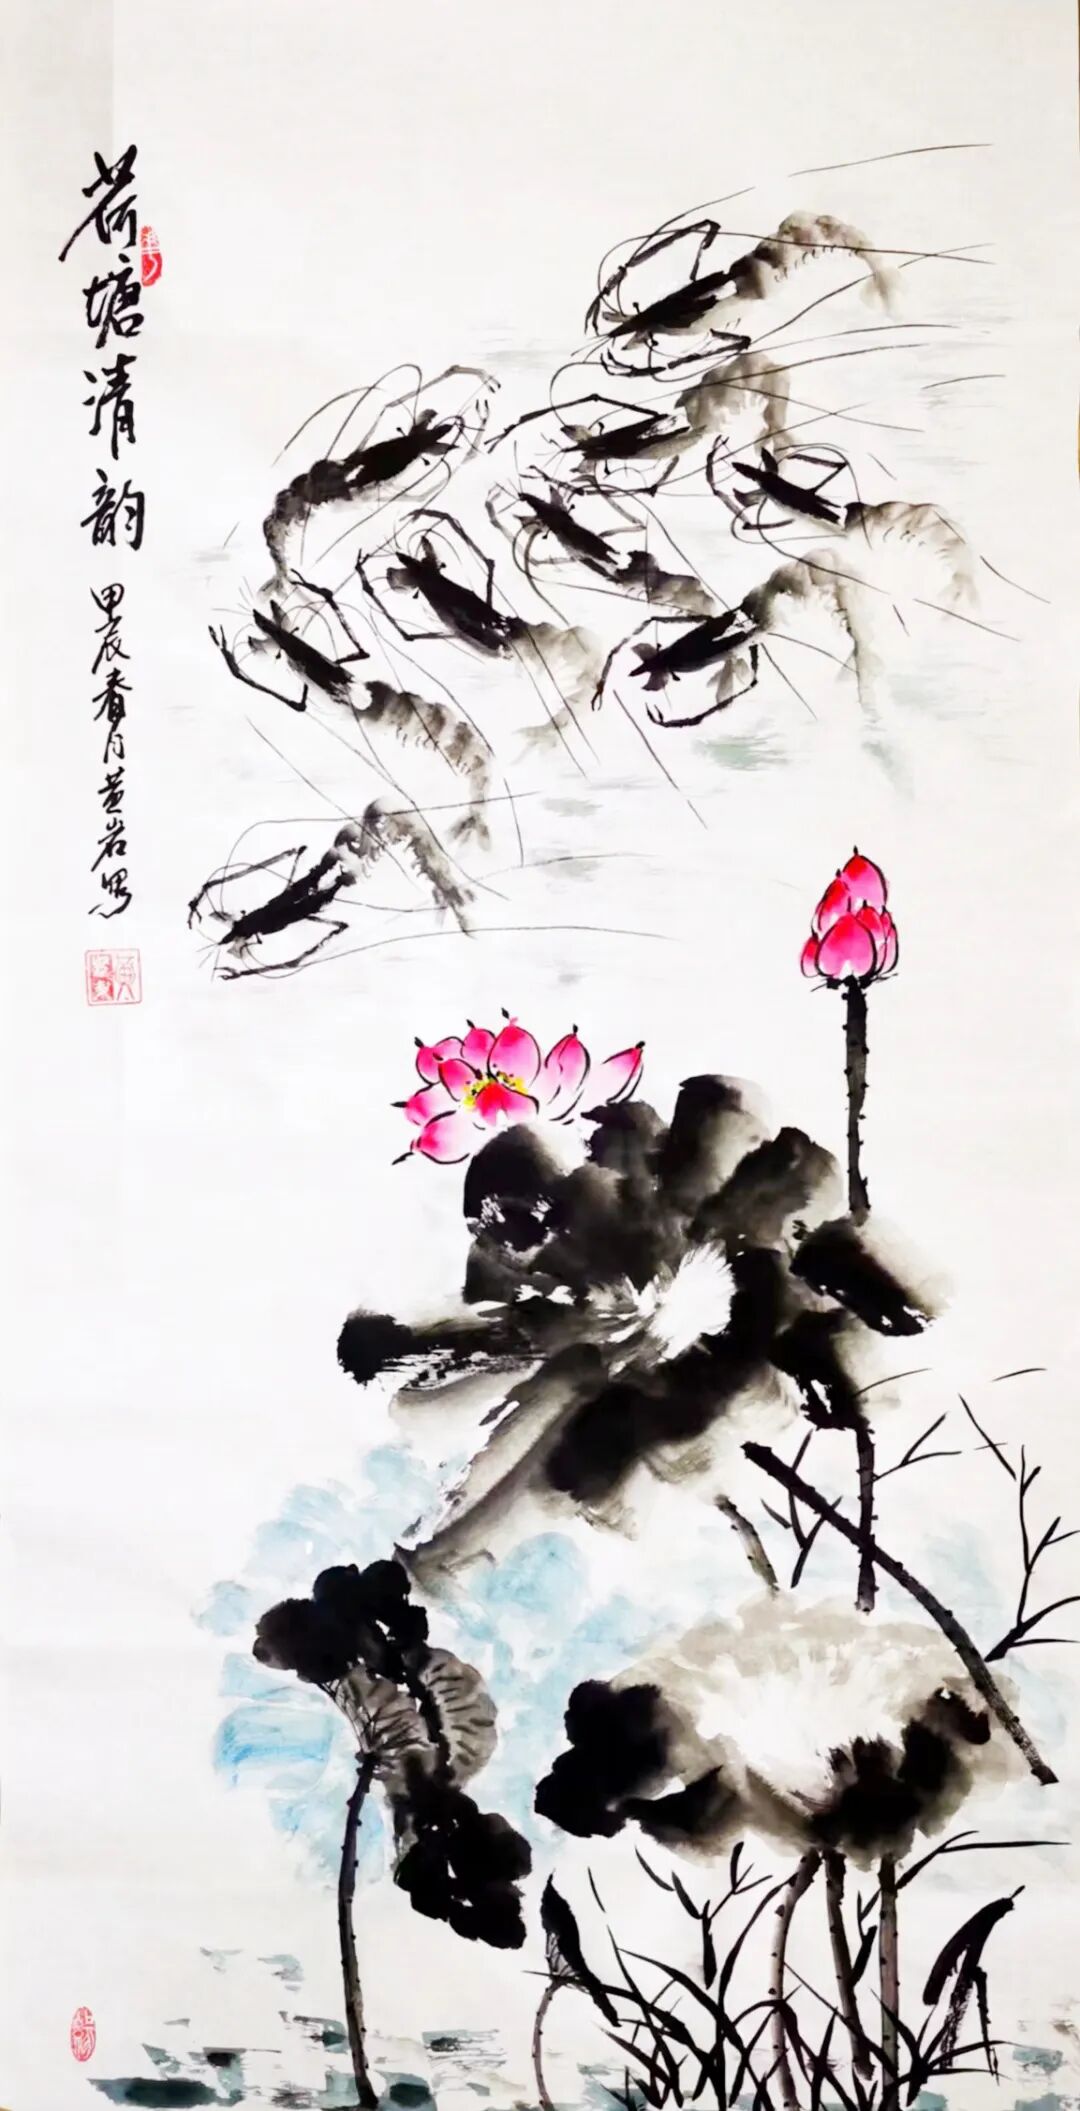 荷塘清韵
甲辰春月黄岩写